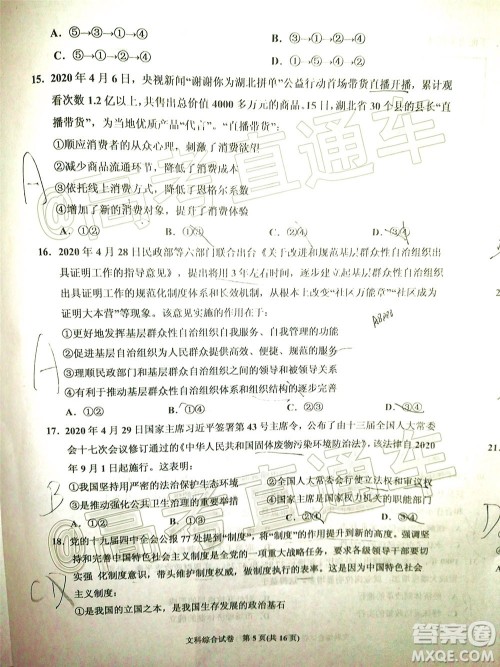 A. ⑤→①→④ B. ⑤→①→②
C. ⑤→①→②
15. 2020 年 4 月 6 日，央视新闻“谢谢你为湖北拼单”公益行动首场带货直播开播，累计观
看次数 1.2 亿以上，共售出总价值 4000 多万元的商品。15 日，湖北省 30 个县的县长“直
播带货”，为当地优质产品“代言”。“直播带货”：
①顺应消费者的从众心理，刺激了消费欲望
②减少商品流通环节，降低了消费成本
③依托线上消费方式，降低了恩格尔系数
④创新的消费对象，提升了消费体验
A. ①② B. ①③ C. ②④ D. ③④
A
16. 2020 年 4 月 28 日民政部等六部门联合出台《关于改进和规范基层群众性自治组织出
具证明工作的指导意见》，提出将用 3 年左右时间，逐步实现基层群众性自治组织出
具证明工作的规范化制度体系和长效机制，从而彻底改变“社区万能章”“社区成
证明大本营”等现象。该意见的作用是：
①更好地发挥基层群众性自治组织自我服务、自我管理的功能
②促进基层自治组织为人民群众提供方便、快捷、规范的服务
③理顺民政部门和基层自治组织之间的领导和被领导关系
④有利于推动基层群众性自治组织组织结构的逐步完善
A. ①② B. ①④ C. ②③ D. ③④
A
17. 2020 年 4 月 29 日国家主席习近平签署第 43 号主席令，公布了由十三届全国人大常委
会十七次会议修订通过的《中华人民共和国固体废物污染环境防治法》，该法律自 2020
年 9 月 1 日起施行。这表明：
①我国坚持用严密的法治保护生态环境 ②全国人大常委会行使
③是推动强化公共卫生治理的重要举措 ④国家主席履行国家行政机关的职能
A. ①② B. ①③ C. ②④ D. ③④
B
18. 党的十九届四中全会公报 77 处提到“制度”，将“制度”的作用提升到新的高度，强调坚
持和完善中国特色社会主义制度是全党的一项重大战略任务，要求各级党委和政府切
实强 化制度意识，带头维护制度权威，作制度执行的表率。这是因为中国特色社会
主义制度：
①是我国的立国之本，是人民当家作主的政治基石
C
D
文科综合试卷 第 5 页(共 16 页)
@高考直通车
@高考直通车
作业帮
zuoyebang.com